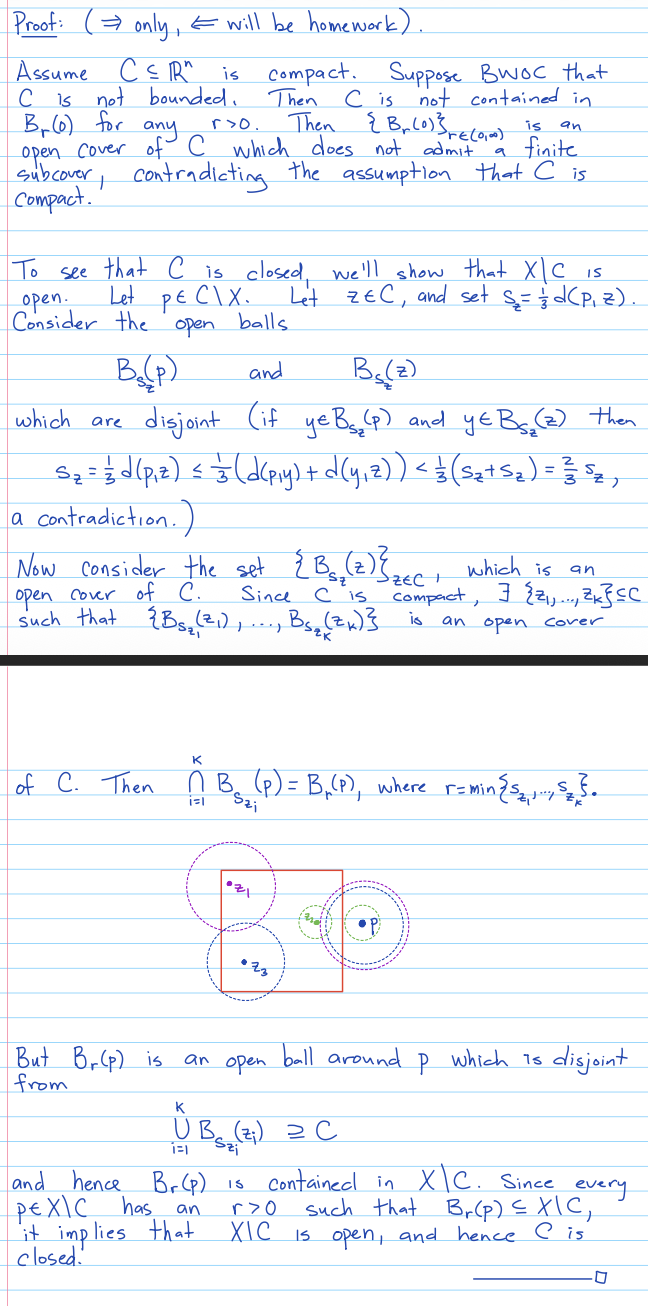 Proof: (⇒ only, ⇐ will be homework).
Assume C ⊆ ℝⁿ is compact. Suppose BWOC that
C is not bounded. Then C is not contained in
B_r(0) for any r>0. Then {B_r(0)}_{r∈(0,∞)} is an
open cover of C which does not admit a finite
subcover, contradicting the assumption that C is
compact.
To see that C is closed, we'll show that X\C is
open. Let p∈C\X. Let z∈C, and set S_z = 1/3 d(p,z).
Consider the open balls
B_{S_z}(p) and B_{S_z}(z)
which are disjoint (if y∈B_{S_z}(p) and y∈B_{S_z}(z) then
S_z = 1/3 d(p,z) ≤ 1/3 (d(p,y) + d(y,z)) < 1/3 (S_z + S_z) = 2/3 S_z,
a contradiction.)
Now consider the set {B_{S_z}(z)}_{z∈C}, which is an
open cover of C. Since C is compact, ∃ {z₁,...,z_K} ⊆ C
such that {B_{S_{z₁}}(z₁), ..., B_{S_{z_K}}(z_K)} is an open cover
of C. Then ⋂_{i=1}^{K} B_{S_{z_i}}(p) = B_r(p), where r = min{S_{z₁},...,S_{z_K}}.
z₁
z₂
p
z₃
But B_r(p) is an open ball around p which is disjoint
from
⋃_{i=1}^{K} B_{S_{z_i}}(z_i) ⊇ C
and hence B_r(p) is contained in X\C. Since every
p∈X\C has an r>0 such that B_r(p) ⊆ X\C,
it implies that X\C is open, and hence C is
closed.